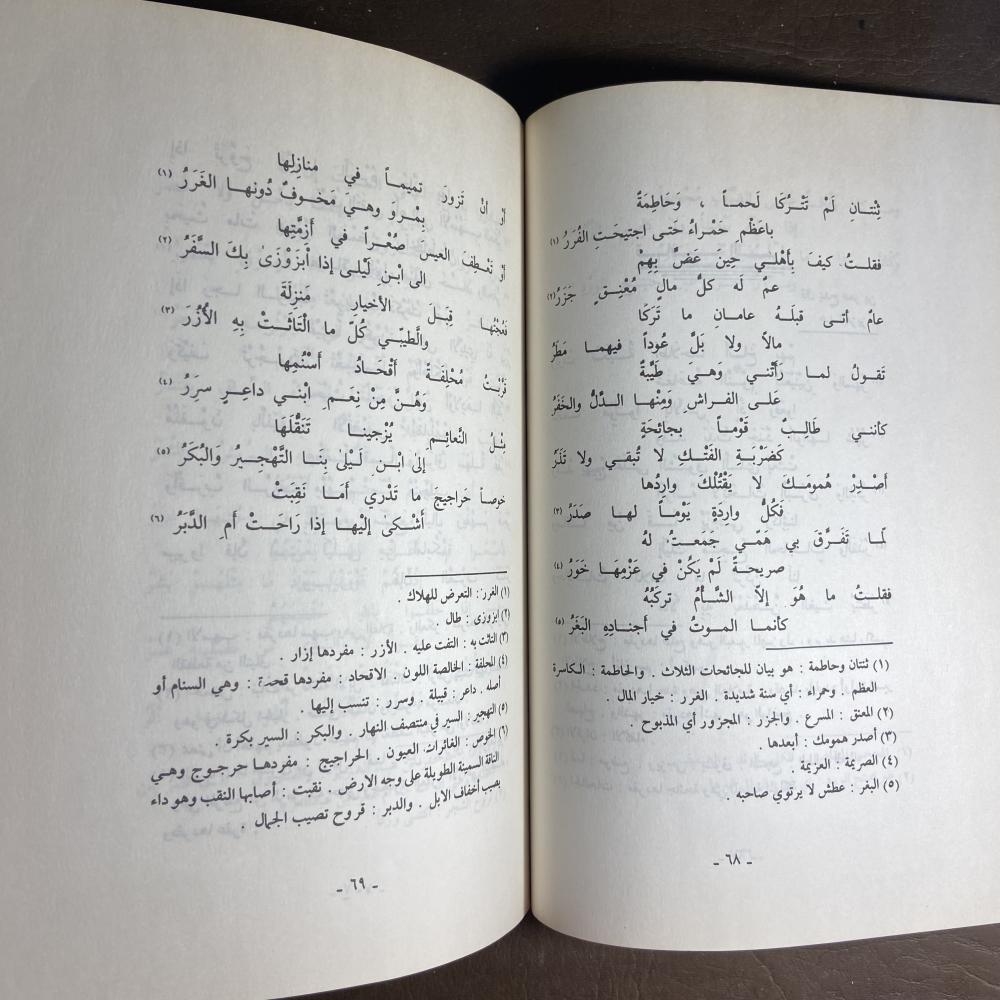 ثِنْتـانِ لَمْ تَتْرُكَا لَحمـاً ، وَحَاطِمَةٌ
باعَظْمِ حَمْرَاءُ حَتـى اجتيحَـتِ الغُرَرُ (١)
فقلـتُ كيفَ بِأَهْلـي حِينَ عَضَّ بِهِمْ
عـمٌ لَـه كـلُّ مالٍ مُعْنِـقٍ جَزَرُ (٢)
عامٌ أتـى قبلَـهُ عامـانِ ما تَرَكَـا
مـالاً ولا بَـلَّ عُوداً فيهمـا مَطَرُ
تَقولُ لمـا رَأَتْنـي وَهـيَ طَيِّبةٌ
عَلـى الفـراشِ وَمِنْهـا الدَّلُّ والخَفَرُ
كأننـي طَالِـبٌ قَوْمـاً بجائِحَةٍ
كَضَرْبَـةِ الفَتْـكِ لا تُبقـي ولا تَذَرُ
أصْـدِرْ هُمومَـكَ لا يَقْتُلْكَ وارِدُهـا
فَكُلُّ وارِدَةٍ يَوْمـاً لهـا صَدَرُ (٣)
لمّـا تَفَـرَّقَ بي هَمّـي جَمَعـتُ لهُ
صريمـةً لَمْ يكُنْ في عَزْمِهَـا خَوَرُ (٤)
فقلـتُ ما هُوَ إلاَّ الشَّـأْمُ تركَبُهُ
كأنمـا المـوتُ في أجنـادِهِ البَغَرُ (٥)
(١) ثنتان وحاطمة : هو بيان للجائحات الثلاث . والحاطمة : الكاسرة
العظم . وحمراء : أي سنة شديدة . الغرر : خيار المال .
(٢) المعنق : المسرع . والجزر : المجزور أي المذبوح .
(٣) أصدر همومك : أبعدها .
(٤) الصريمة : العزيمة
(٥) البغر : عطش لا يرتوي صاحبه .
- ٦٨ -
أو أنْ تَزورَ تميمـاً في منازِلِها
بِمْروَ وهـيَ مَخـوفٌ دُونهـا الغَرَرُ (١)
أو تَعْطِفَ العيسَ صُعْـراً في أزِمَّتِها
الى ابْـنِ لَيْلـى إذا ابْزَوْزَىٰ بِكَ السَّفَرُ (٢)
فَعُجْتُهـا قِبَـلَ الأخيـارِ مَنزِلَـةً
والطَّيبّـي كُلِّ ما الْتَاثَـتْ بِهِ الأُزُرُ (٣)
قَرَّبْـتُ مُحْلِفَـةً أقْحَـادُ أسْنُمِهـا
وَهُـنَّ مِنْ نِعَـمِ ابْنـي داعـرٍ سررُ (٤)
مِثْـلُ النَّعائـمِ يُزْجينـا تَنَقُّلَها
إلىٰ ابْـنِ لَيْلىٰ بِنـا التَّهْجِيـرُ وَالبُكَرُ (٥)
خوصـاً حَراجيجَ ما تَدْري أمَـا نَقِبَتْ
أَشْـكىٰ إليْهـا إذا رَاحَـتْ أمِ الدَّبَرُ (٦)
(١) الغرر : التعرض للهلاك .
(٢) ابزوزى : طال .
(٣) التاثت به : التفت عليه . الأزر : مفردها إزار .
(٤) المحلفة : الخالصة اللون . الاقحاد : مفردها قحدة : وهي السنام أو
أصله . داعر : قبيلة . وسرر : تنسب إليها .
(٥) التهجير : السير في منتصف النهار . والبكر : السير بكرة .
(٦) الخوص : الغائرات العيون . الحراجيج : مفردها حرجوج وهي
الناقة السمينة الطويلة على وجه الارض . نقبت : أصابها النقب وهو داء
يصيب أخفاف الابل . والدبر : قروح تصيب الجمال .
- ٦٩ -